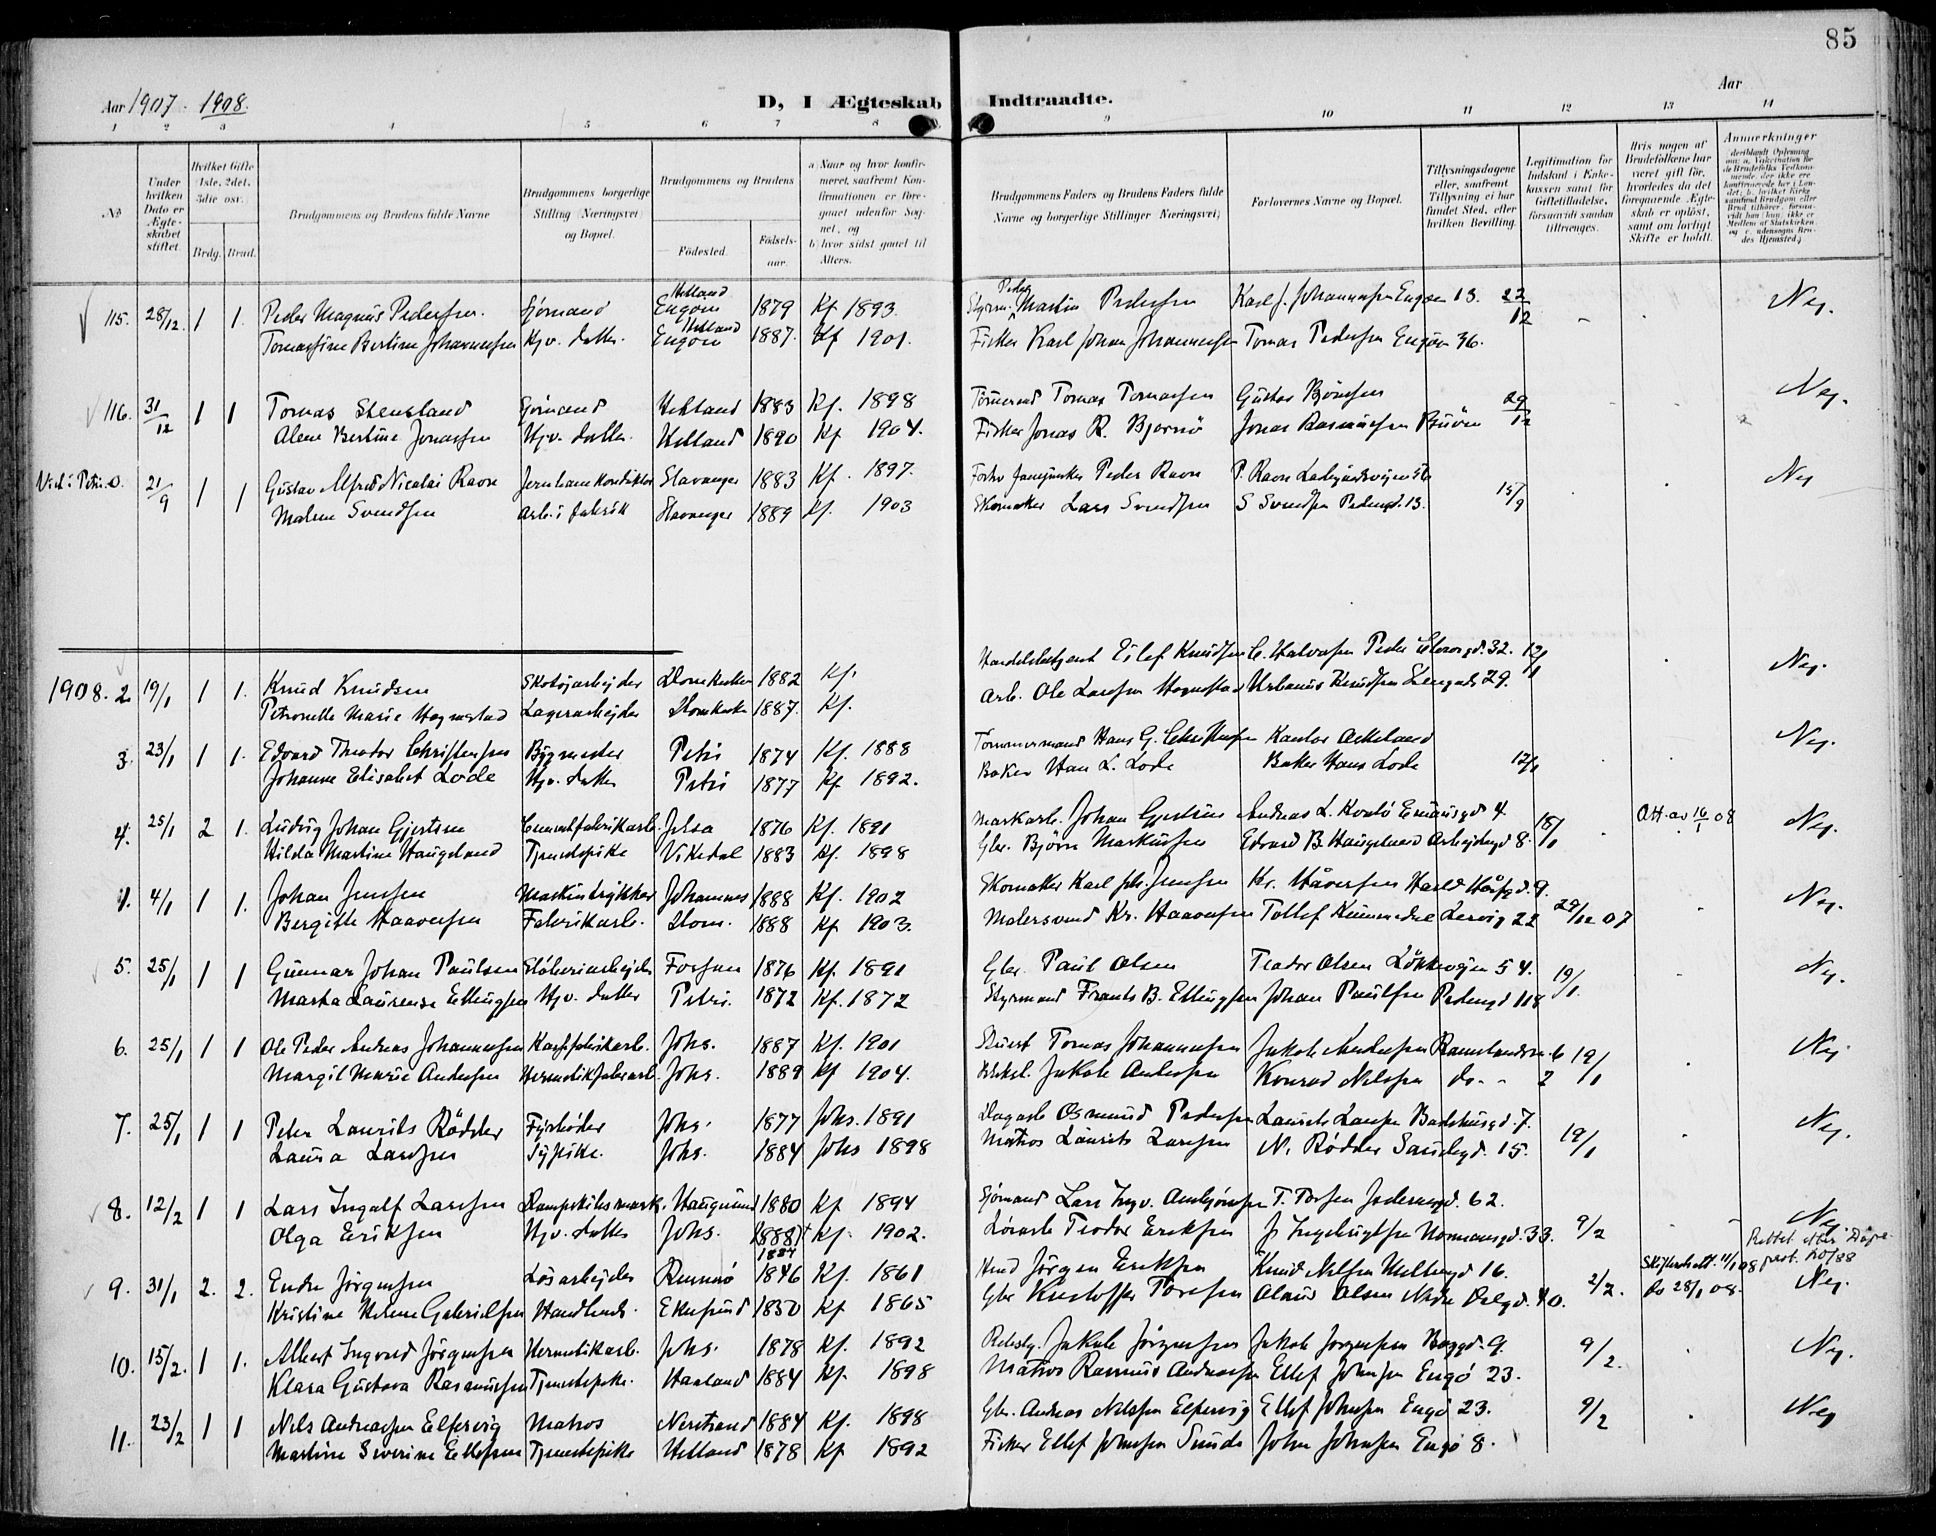 85
Aar 1907 - 1908.
D, I Ægteskab Indtraadte.
Aar
1 2 3 4 5 6 7 8 9 10 11 12 13 14
No
Under hvilken Dato er Ægteskabet stiftet.
Hvilket Gifte 1ste, 2det, 3die osv.
Brdg. Brud.
Brudgommens og Brudens fulde Navne
Brudgommens borgerlige Stilling (Næringsvei) og Bopæl.
Brudgommens og Brudens
Fødested.
Fødselsaar.
a) Naar og hvor konfirmeret, saafremt Konfirmationen er foregaaet udenfor Sognet, og
b) hvor sidst gaaet til Alters.
Brudgommens Faders og Brudens Faders fulde Navne og borgerlige Stillinger (Næringsvei)
Forlovernes Navne og Bopæl.
Tillysningsdagene eller, saafremt Tillysning ei har fundet Sted, efter hvilken Bevilling.
Legitimation for Indskud i Enkekassen samt for Giftetilladelse, forsaavidt saadan tiltrænges.
Hvis nogen af Brudefolkene har været gift før, hvorledes da det foregaaende Ægteskab er opløst, samt om lovligt Skifte er holdt.
Anmerkninger
115. 28/12. 1 1. Peder Magnus Pedersen. Sjømand Hetland Engøen 1879 Kf. 1893. Styrm. Peder Martin Pedersen Karl J. Johannesen Engøen 13. 22/12 Nej.
Tomasine Bertine Johannessen Hjv. datter. Hetland Engøen 1887. Kf 1901. Fisker Karl Johan Johannessen Tomas Pedersen Engøen 36.
116. 31/12 1 1 Tomas Stensland Sjømand Hetland 1883 Kf. 1898 Tømmermd Tomas Tomassen Gustav Bjørnsen 29/12 Nej.
Alene Bertine Jonassen Hjv. datter. Hetland 1890 Kf 1904. Fisker Jonas R. Bjørnø Jonas Rasmussen
21/9 1 1 Gustav Alfred Nicolai Ravn Jernbanekonduktør Stavanger 1883 Kf. 1897. Peder Ravn P. Ravn Ladegaardsvejen 15/9 Nej
Malene Svendsen Arb. i fabrik Stavanger 1889 Kf. 1903 Skomaker Lars Svendsen S Svendsen Pedersgd. 13.
1908. 2 19/1 1 1. Knud Knudsen Skotøjarbejder Domkirken 1882 Kf. Handelsbetjent Eilef Knudsen C. Halvorsen Peder 32. 12/1 Nej.
Petronelle Marie Hognestad Lagerarbejder Domkirke 1887. Kf. Arb. Ole Larssen Hognestad Urbanus Knudsen 29.
3. 23/1 1 1. Edvard Theodor Christensen Bygmester Petri 1874 Kf. 1888 Tømmermand Hans G. Christensen Kantor Aekland 12/1 Nej.
Johanne Elisabet Lode Hjv. datter Petri 1877 Kf 1892. Baker Hans L. Lode Baker Hans Lode
4. 25/1 2 1. Ludvig Johan Gjertsen Cementfabrikarb. Jelsa 1876 Kf. 1891 Johan Gjertsen Andreas L. Kvalø Emausgd 4. 18/1 Att. av 16/1 08 Nej.
Hilda Martine Haugeland Tjenestepike Vikedal 1883 Kf. 1898 Gbr. Bjørn Markussen Edvard B. Haugeland Arbejdergd 8.
1. 4/1 1 1. Johan Jensen Maskintrykker Johannes 1888 Kf. 1902 Skomaker Karl Joh. Jensen Kr. Håversen Harld Hårfgd. 9. 29/12 07 Nej.
Bergitte Haaversen Fabrikarb. Dom. 1888 Kf 1903. Malersvend Kr. Haaversen Tollef Lervig 22
5. 25/1 1 1 Gunnar Johan Paulsen Støberiarbejder Fossan 1876 Kf. 1891 Gbr. Paul Olsen Teodor Olsen Løkkevejen 54. 19/1. Nej.
Marta Laurense Ellingsen Hjv. datter Petri. 1872 Kf. 1872 Styrmand Frants B. Ellingsen Johan Paulsen Pedersgd 118
6. 25/1 1 1 Ole Peder Andreas Johannessen Johs. 1887 Kf. 1901 Tomas Johannessen Jakob Andersen 6 19/1 Nej
Margit Marie Andersen Hermetikfabrarb. Johs. 1889 Kf 1904. Jakob Andersen Konrad Nilssen do - - 2
7. 25/1 1 1 Peter Laurits Rødder Fyrbøder Johs. 1877 Johs. 1891 Dagarb Osmund Pedersen Laurits Larsen Badehusgd. 7. 19/1 Nej.
Laura Larssen Sypike. Johs. 1884 Johs 1898 Matros Laurits Larssen N. Rødder Sandsgd. 15.
8. 12/2 1 1 Lars Ingolf Larssen Dampskibsmask. Haugesund 1880 Kf 1894 Sjømand Lars Ingv. T. Torsen Jadersgd. 62. 9/2 Nej.
Olga Eriksen Hjv. datter Johs. 1888 1887 Kf. 1902. Løsarb Teodor Eriksen J. Ingebrigtsen Normansgd. 33. Rettet etter Dåpsprot. 20/88
9. 31/1 2. 2. Endre Jørgensen Løsarbejder Rennesø 1846 Kf. 1861 Hmd Jørgen Eriksen Knud Nilsen 16. 2/2. Skifteatt. 11/1 08 Nej.
Kristine Helene Gabrielsen Handlende Ekersund 1850 Kf 1865 Gbr Kristoffer Torsen Olaus Olsen Nedre Dalgd. 40. do 28/1 08.
10. 15/2. 1 1. Albert Ingvard Jørgensen Hermetikarb. Johs. 1878 Kf. 1892 Rebslg. Jakob Jørgensen Jakob Jørgensen 9. 9/2. Nej.
Klara Gustava Rasmussen Tjenestepike. Haaland 1884 Kf. 1898 Matros Rasmus Andreassen Ellef Johnsen Engø 23.
11. 23/2 1 1 Nils Andreassen Eltervig Matros Nerstrand 1884 Kf. 1898 Gbr. Andreas Nilssen Eltervig Ellef Johnsen Engø 23. 9/2 Nej
Martine Severine Ellefsen Tjenestepike Hetland 1878 Kf 1892 Fisker Ellef Johnsen Sunde John Johnsen Engø 8.